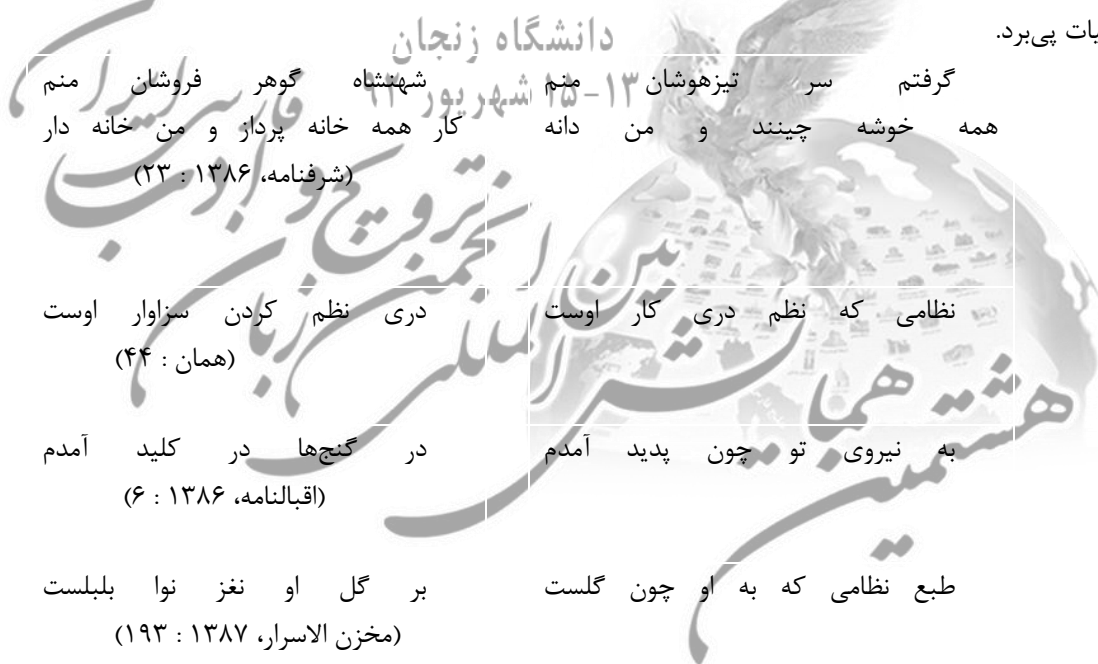 بات پی‌برد.
دانشگاه زنجان
۱۳-۱۵ شهریور ۹۲
گرفتم سر تیزهوشان منم شهنشاه گوهر فروشان منم
همه خوشه چینند و من دانه کار همه خانه پرداز و من خانه دار
(شرفنامه، ۱۳۸۶ : ۲۳)
نظامی که نظم دری کار اوست دری نظم کردن سزاوار اوست
(همان : ۴۴)
به نیروی تو چون پدید آمدم در گنج‌ها در کلید آمدم
(اقبالنامه، ۱۳۸۶ : ۶)
طبع نظامی که به او چون گلست بر گل او نغز نوا بلبلست
(مخزن الاسرار، ۱۳۸۷ : ۱۹۳)
هشتمین همایش بین المللی انجمن ترویج زبان و ادب فارسی ایران